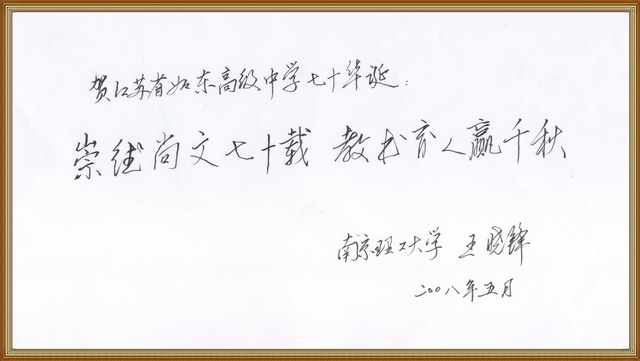 贺江苏省如东高级中学七十华诞：
崇德尚文七十载 教书育人赢千秋
南京理工大学 王晓锋
二〇〇八年五月